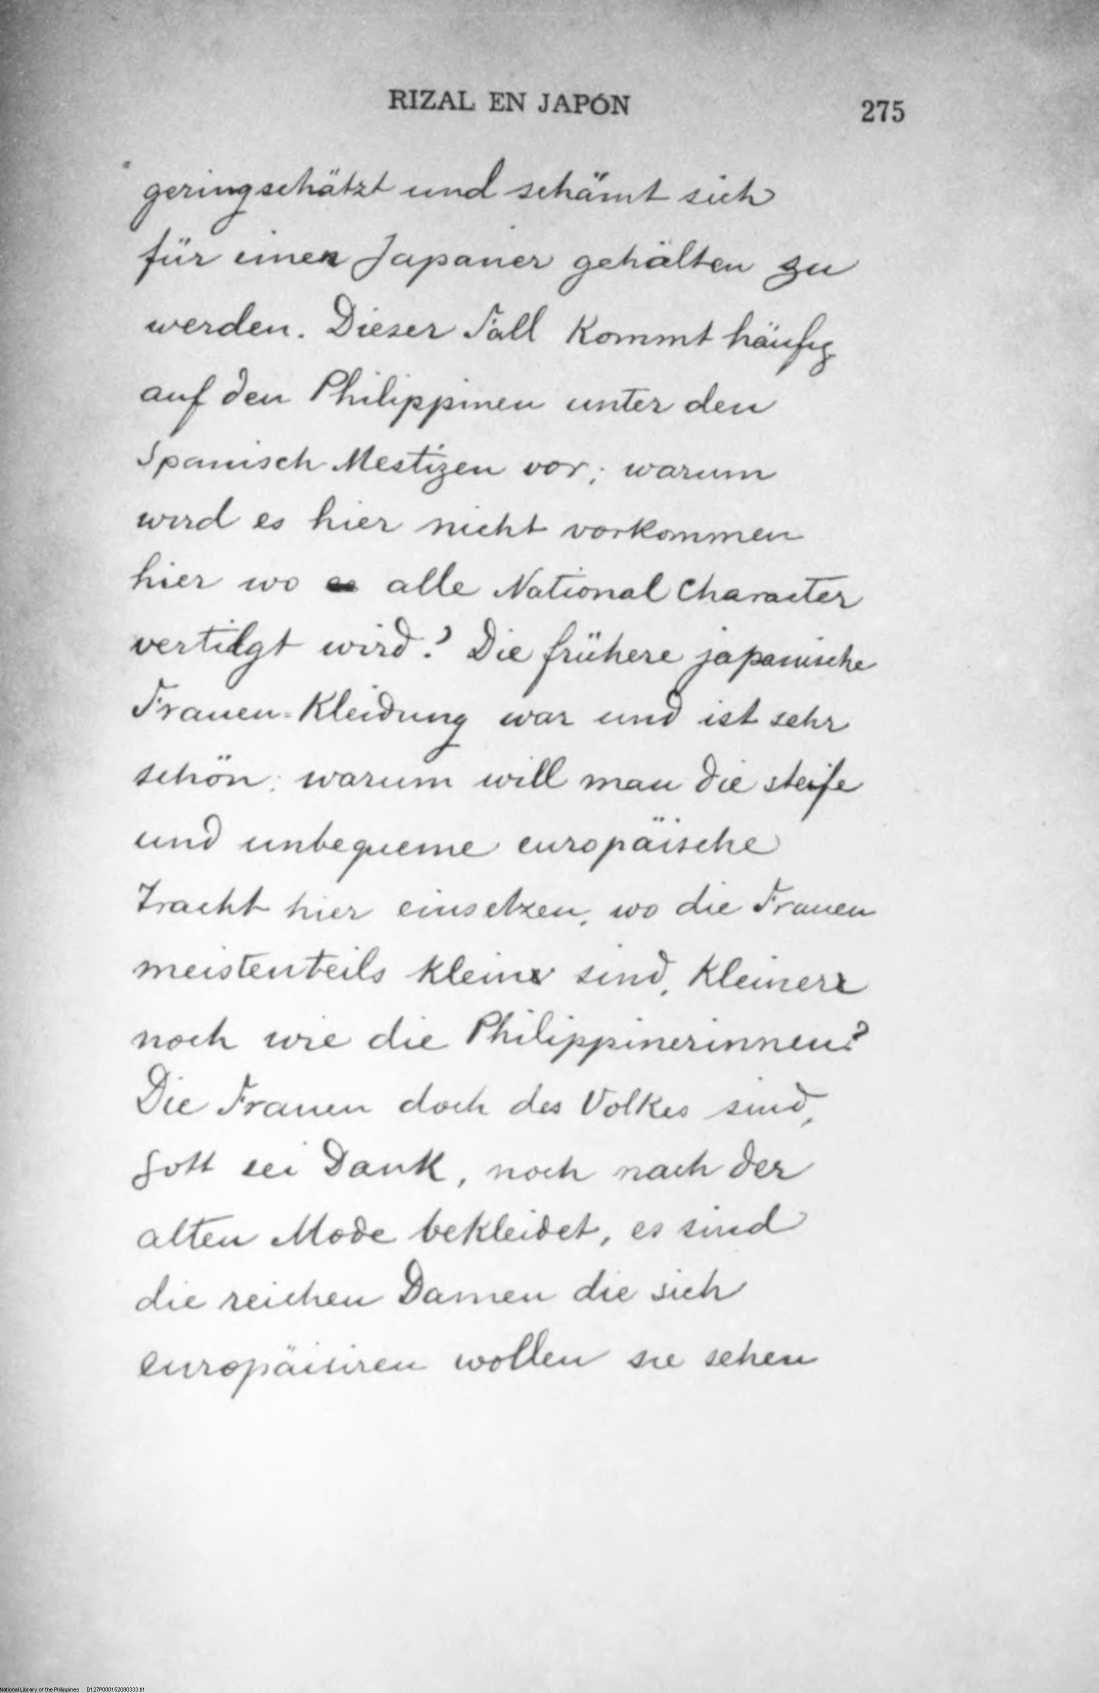 RIZAL EN JAPÓN 275
geringschätzt und schämt sich
für einen Japaner gehälten zu
werden. Dieser Fall kommt häufig
auf den Philippinen unter den
Spanisch Mestizen vor; warum
wird es hier nicht vorkommen
hier wo alle National Character
vertilgt wird? Die frühere japanische
Frauen-Kleidung war und ist sehr
schön: warum will man die steife
und unbequeme europäische
Tracht hier einsetzen, wo die Frauen
meistenteils kleine sind, kleinere
noch wie die Philippinerinnen?
Die Frauen doch des Volkes sind,
Gott sei Dank, noch nach der
alten Mode bekleidet, es sind
die reichen Damen die sich
europäisiren wollen sie sehen
National Library of the Philippines